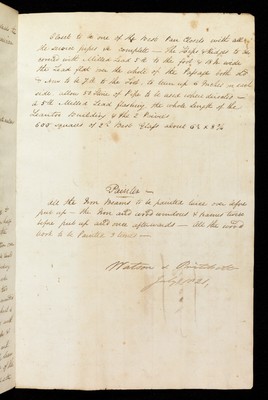 Closet to be one of the best Pan Closets with all
the waste pipes &c complete — The Hips & Ridges to be
covered with Milled Lead 5 lb to the foot & 18 In wide
the Lead flat over the whole of the Passage both
to be 7 lb to the foot, to turn up 6 Inches on each
side allow 80 Feet of Pipe to be used where directed —
a 5 lb Milled Lead flashing the whole length of the
Leantoo building & the 2 Privies
600 squares of 2d Best Glass about
Painter —
All the Iron Beams to be painted twice over before
put up — the Iron and wood windows & frames twice
before put up and once afterwards — All the wood
work to be Painted 3 times —
Watson & Pritchett
July 1821